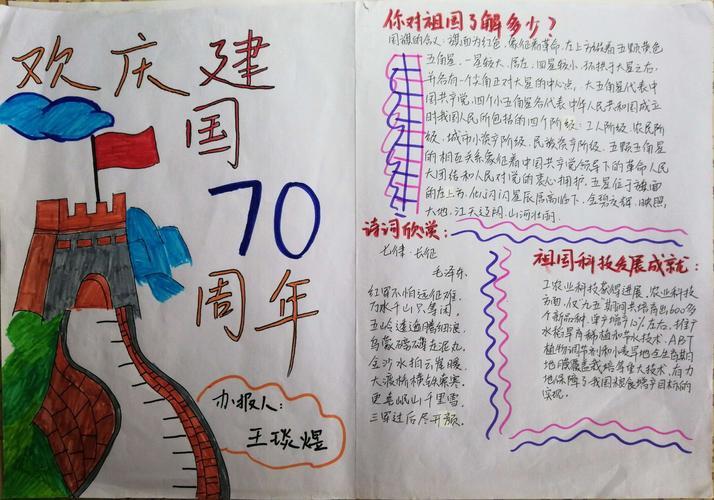 欢庆建
国
70
周年
办报人:
王琰煜
你对祖国了解多少?
国旗的含义:旗面为红色,象征着革命,左上方缀着五颗黄色
五角星,一星较大,居左,四星较小,环拱于大星之右,
并各有一个尖角正对大星的中心点,大五角星代表中
国共产党,四个小五角星各代表中华人民共和国成立
时我国人民所包括的四个阶级:工人阶级、农民阶
级、城市小资产阶级、民族资产阶级,五颗五角星
的相互关系象征着中国共产党领导下的革命人民
大团结和人民对党的衷心拥护,五星位于旗面
的左上方,似闪闪星辰居高临下,金碧交辉,映照
大地,江天辽阔,山河壮丽。
诗词欣赏:
七律·长征
毛泽东
红军不怕远征难,
万水千山只等闲。
五岭逶迤腾细浪,
乌蒙磅礴走泥丸。
金沙水拍云崖暖,
大渡桥横铁索寒。
更喜岷山千里雪,
三军过后尽开颜。
祖国科技发展成就:
1.农业科技蒙勃进展,农业科技
方面,仅九五期间共培育出600多
个新品种,单产增产12%左右,推广
水稻旱育稀植和节水技术,ABT
植物调节剂和小麦旱地全生育期
地膜覆盖栽培等重大技术,有力
地保障了我国粮食增产目标的
实现。